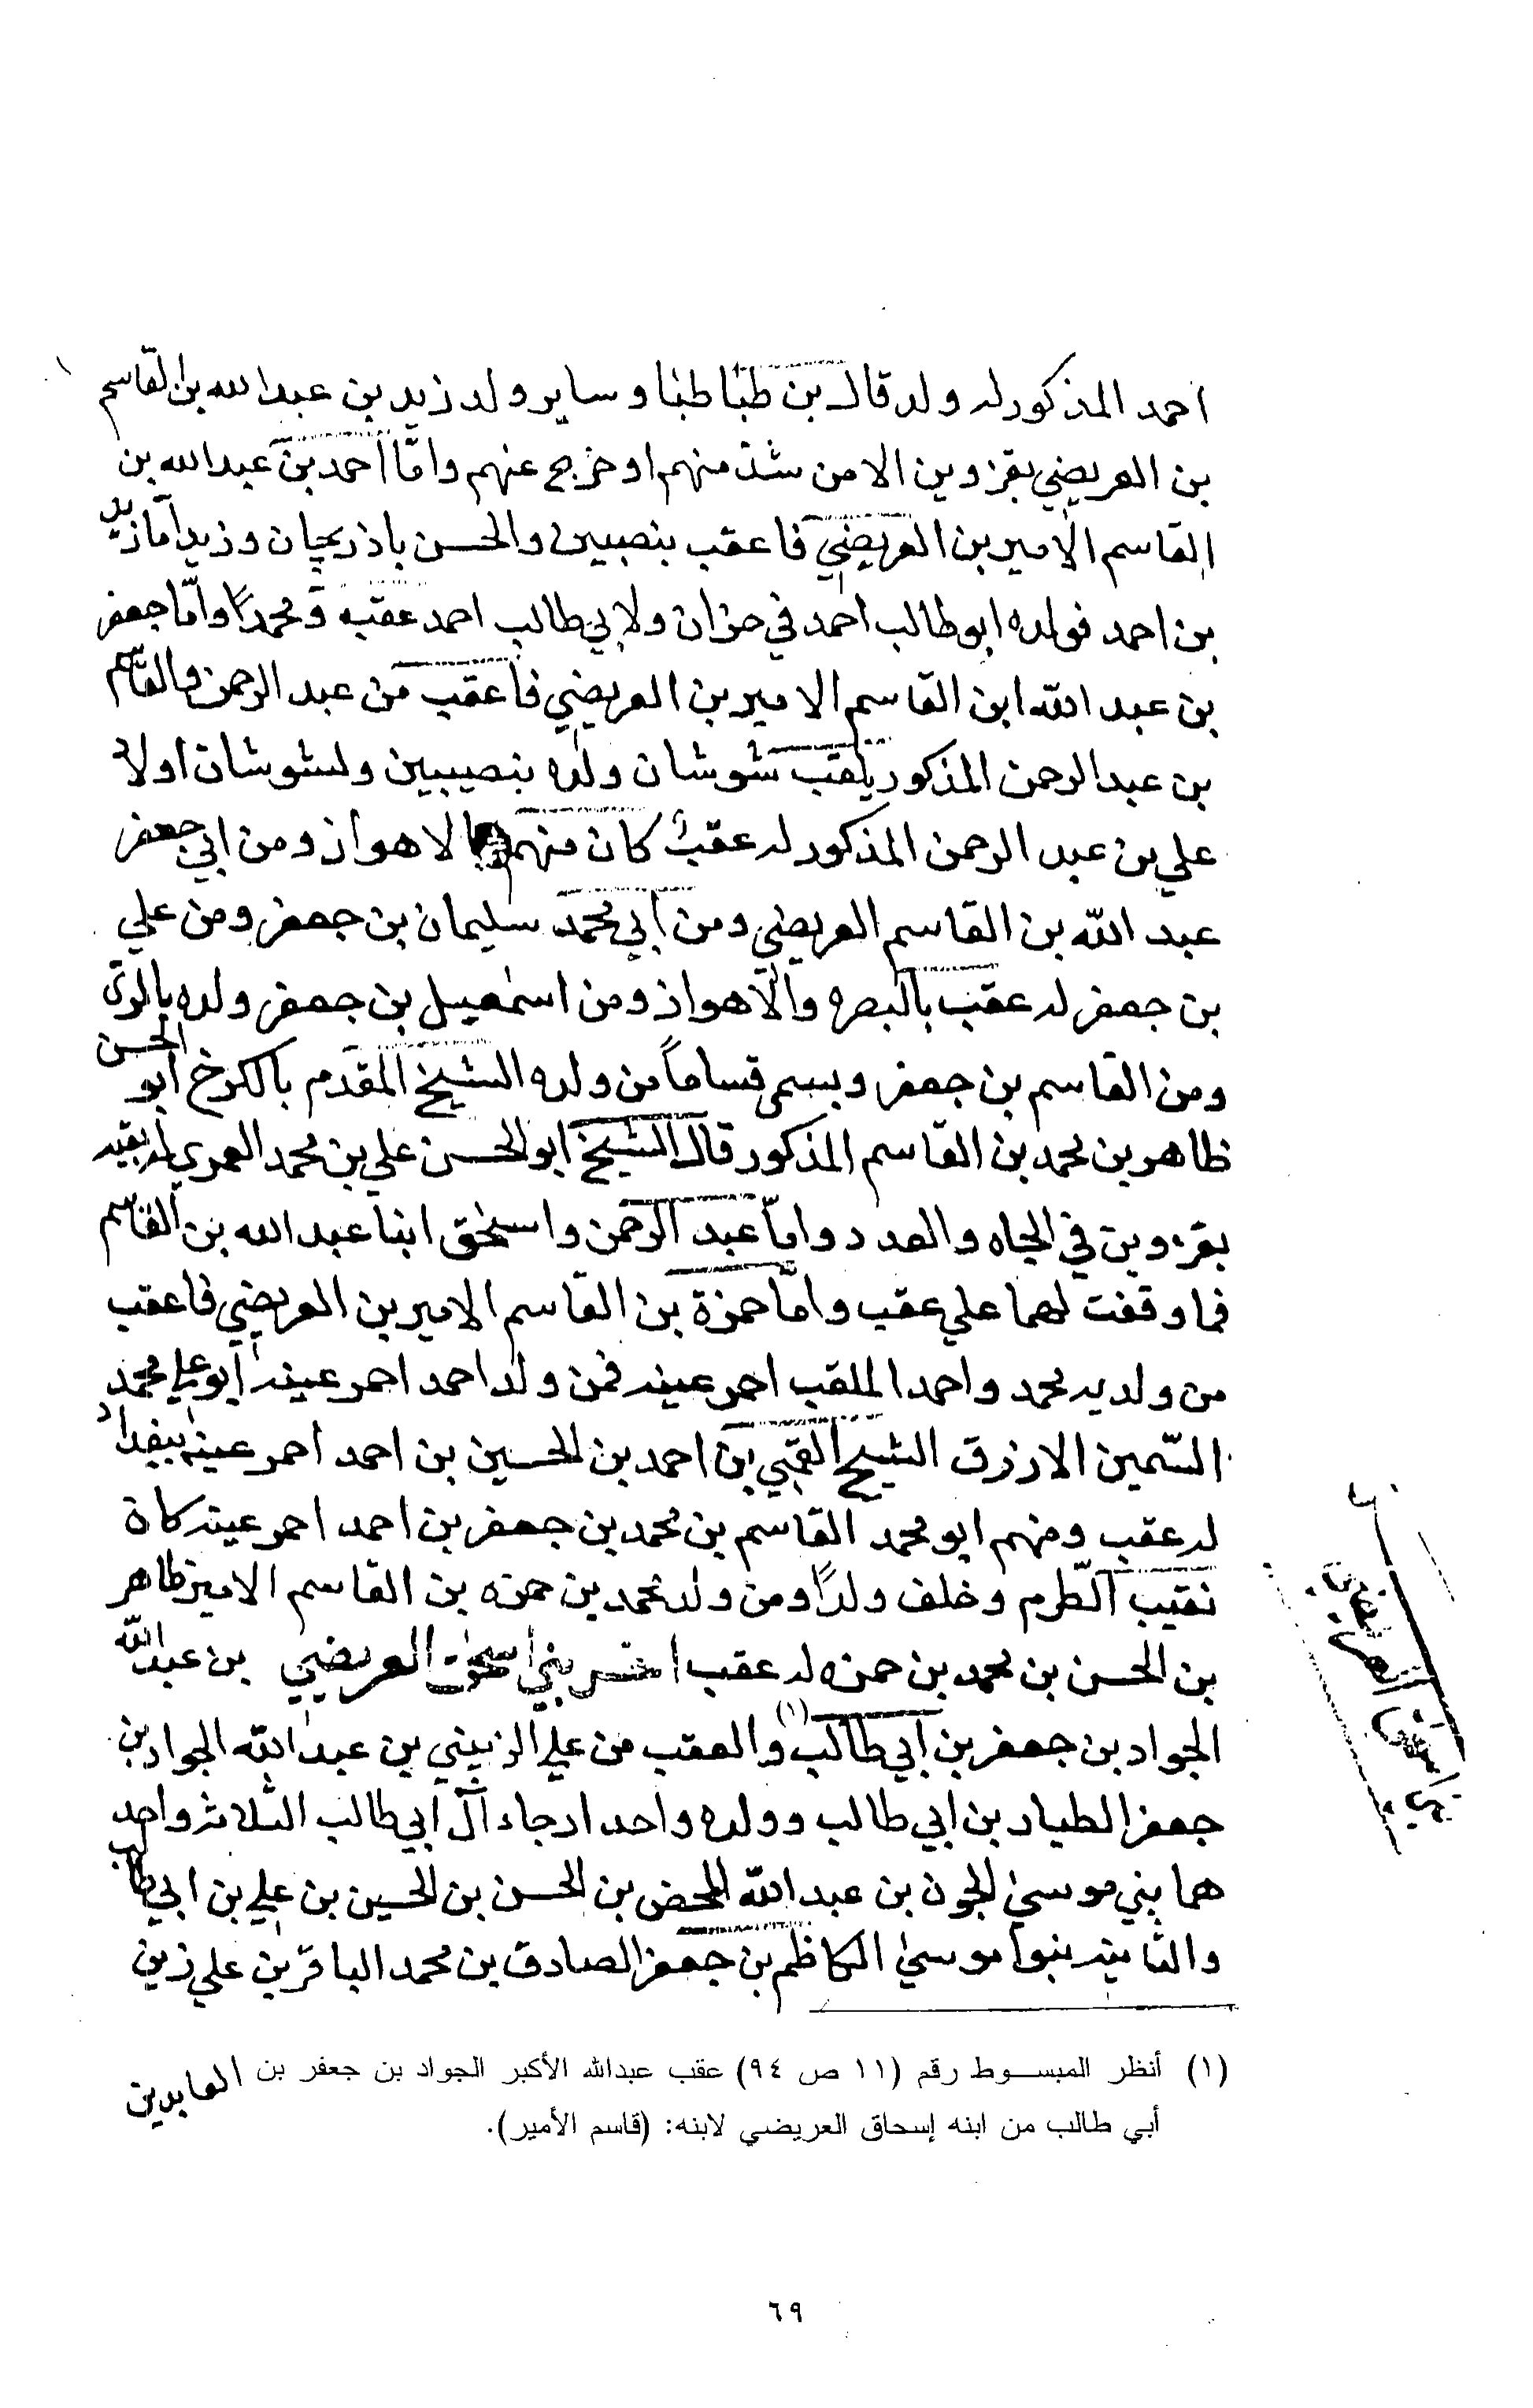 احمد المذكور له ولد قال بن طباطبا وساير ولد زيد بن عبدالله بن القاسم
بن العريضي بقزوين الا من شذ منهم او خرج عنهم وامّا احمد بن عبدالله بن
القاسم الامير بن العريضي فاعقب بنصيبين والحسن باذربيجان وزيد اما زيد
بن احمد فولده ابو طالب احمد في حران ولابي طالب احمد عقبه ومحمداً وامّا جعفر
بن عبد الله ابن القاسم الامير بن العريضي فاعقب من عبد الرحمن والقاسم
بن عبد الرحمن المذكور يلقب شوشان ولده بنصيبين ولشوشان اولاد
علي بن عبد الرحمن المذكور له عقبٌ كان منهم بالاهواز ومن ابي جعفر
عبد الله بن القاسم العريضي ومن ابي محمد سليمان بن جعفر ومن علي
بن جعفر له عقب بالبصره والاهواز ومن اسمعيل بن جعفر ولده بالري
ومن القاسم بن جعفر ويسمى قساماً من ولده الشيخ المقدم بالكرخ ابو الحسن
طاهر بن محمد بن القاسم المذكور قال الشيخ ابو الحسن علي بن محمد العمري له بقيه
بقزوين في الجاه والعدد وامّا عبد الرحمن واسحق ابنا عبد الله بن القاسم
فما وقفت لهما علي عقب وامّا حمزة بن القاسم الامير بن العريضي فاعقب
من ولديه محمد واحمد الملقب احمر عينه فمن ولد احمد احمر عينه ابو علي محمد
السّمين الازرق الشيخ القمي بن احمد بن الحسين بن احمد احمر عينه ببغداد
له عقب ومنهم ابو محمد القاسم بن محمد بن جعفر بن احمد احمر عينه كان
نقيب الطرم وخلف ولداً ومن ولد محمد بن حمزه بن القاسم الامير طاهر
بن الحسن بن محمد بن حمزه له عقب اخر بني اسحق العريضي بن عبدالله
الجواد بن جعفر بن ابي طالب (١) والعقب من علي الزينبي بن عبد الله الجواد بن
جعفر الطيار بن ابي طالب وولده واحد ارجاء آل ابي طالب الثلاثه واحد
هما بني موسىٰ الجون بن عبد الله المحض بن الحسن بن الحسين بن علي بن ابي طالب
والثانيه بنوا موسىٰ الكاظم بن جعفر الصادق بن محمد الباقر بن علي زين
العابدين
بني اسحق العريضي
(١) أنظر المبسوط رقم (١١ ص ٩٤) عقب عبدالله الأكبر الجواد بن جعفر بن
أبي طالب من ابنه إسحاق العريضي لابنه: (قاسم الأمير).
٦٩